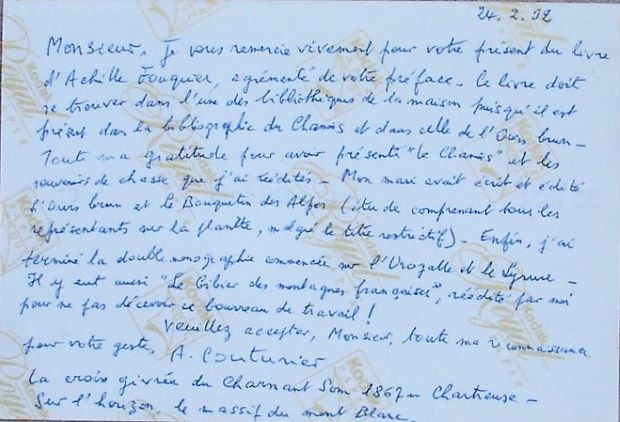 24.2.92
Monsieur, Je vous remercie vivement pour votre présent du livre
d'Achille Fouquier, agrémenté de votre préface - Le livre doit
se trouver dans l'une des bibliothèques de la maison puisqu'il est
présent dans la bibliographie du Chamois et dans celle de l'Ours brun -
Toute ma gratitude pour avoir présenté "le Chamois" et les
souvenirs de chasse que j'ai réédités - Mon mari avait écrit et édité
L'Ours brun et le Bouquetin des Alpes (étude comprenant tous les
représentants sur la planète, malgré le titre restrictif) - Enfin, j'ai
terminé la double monographie commencée sur l'Urogalle et le Lyrure -
Il y eut aussi "Le Gibier des montagnes françaises", réédité par moi
pour ne pas décevoir ce bourreau de travail !
Veuillez accepter, Monsieur, toute ma reconnaissance
pour votre geste, A. Couturier
La croix givrée du Charmant Som 1867m Chartreuse -
Sur l'horizon, le massif du mont Blanc
Kodak
Royal
PAPER